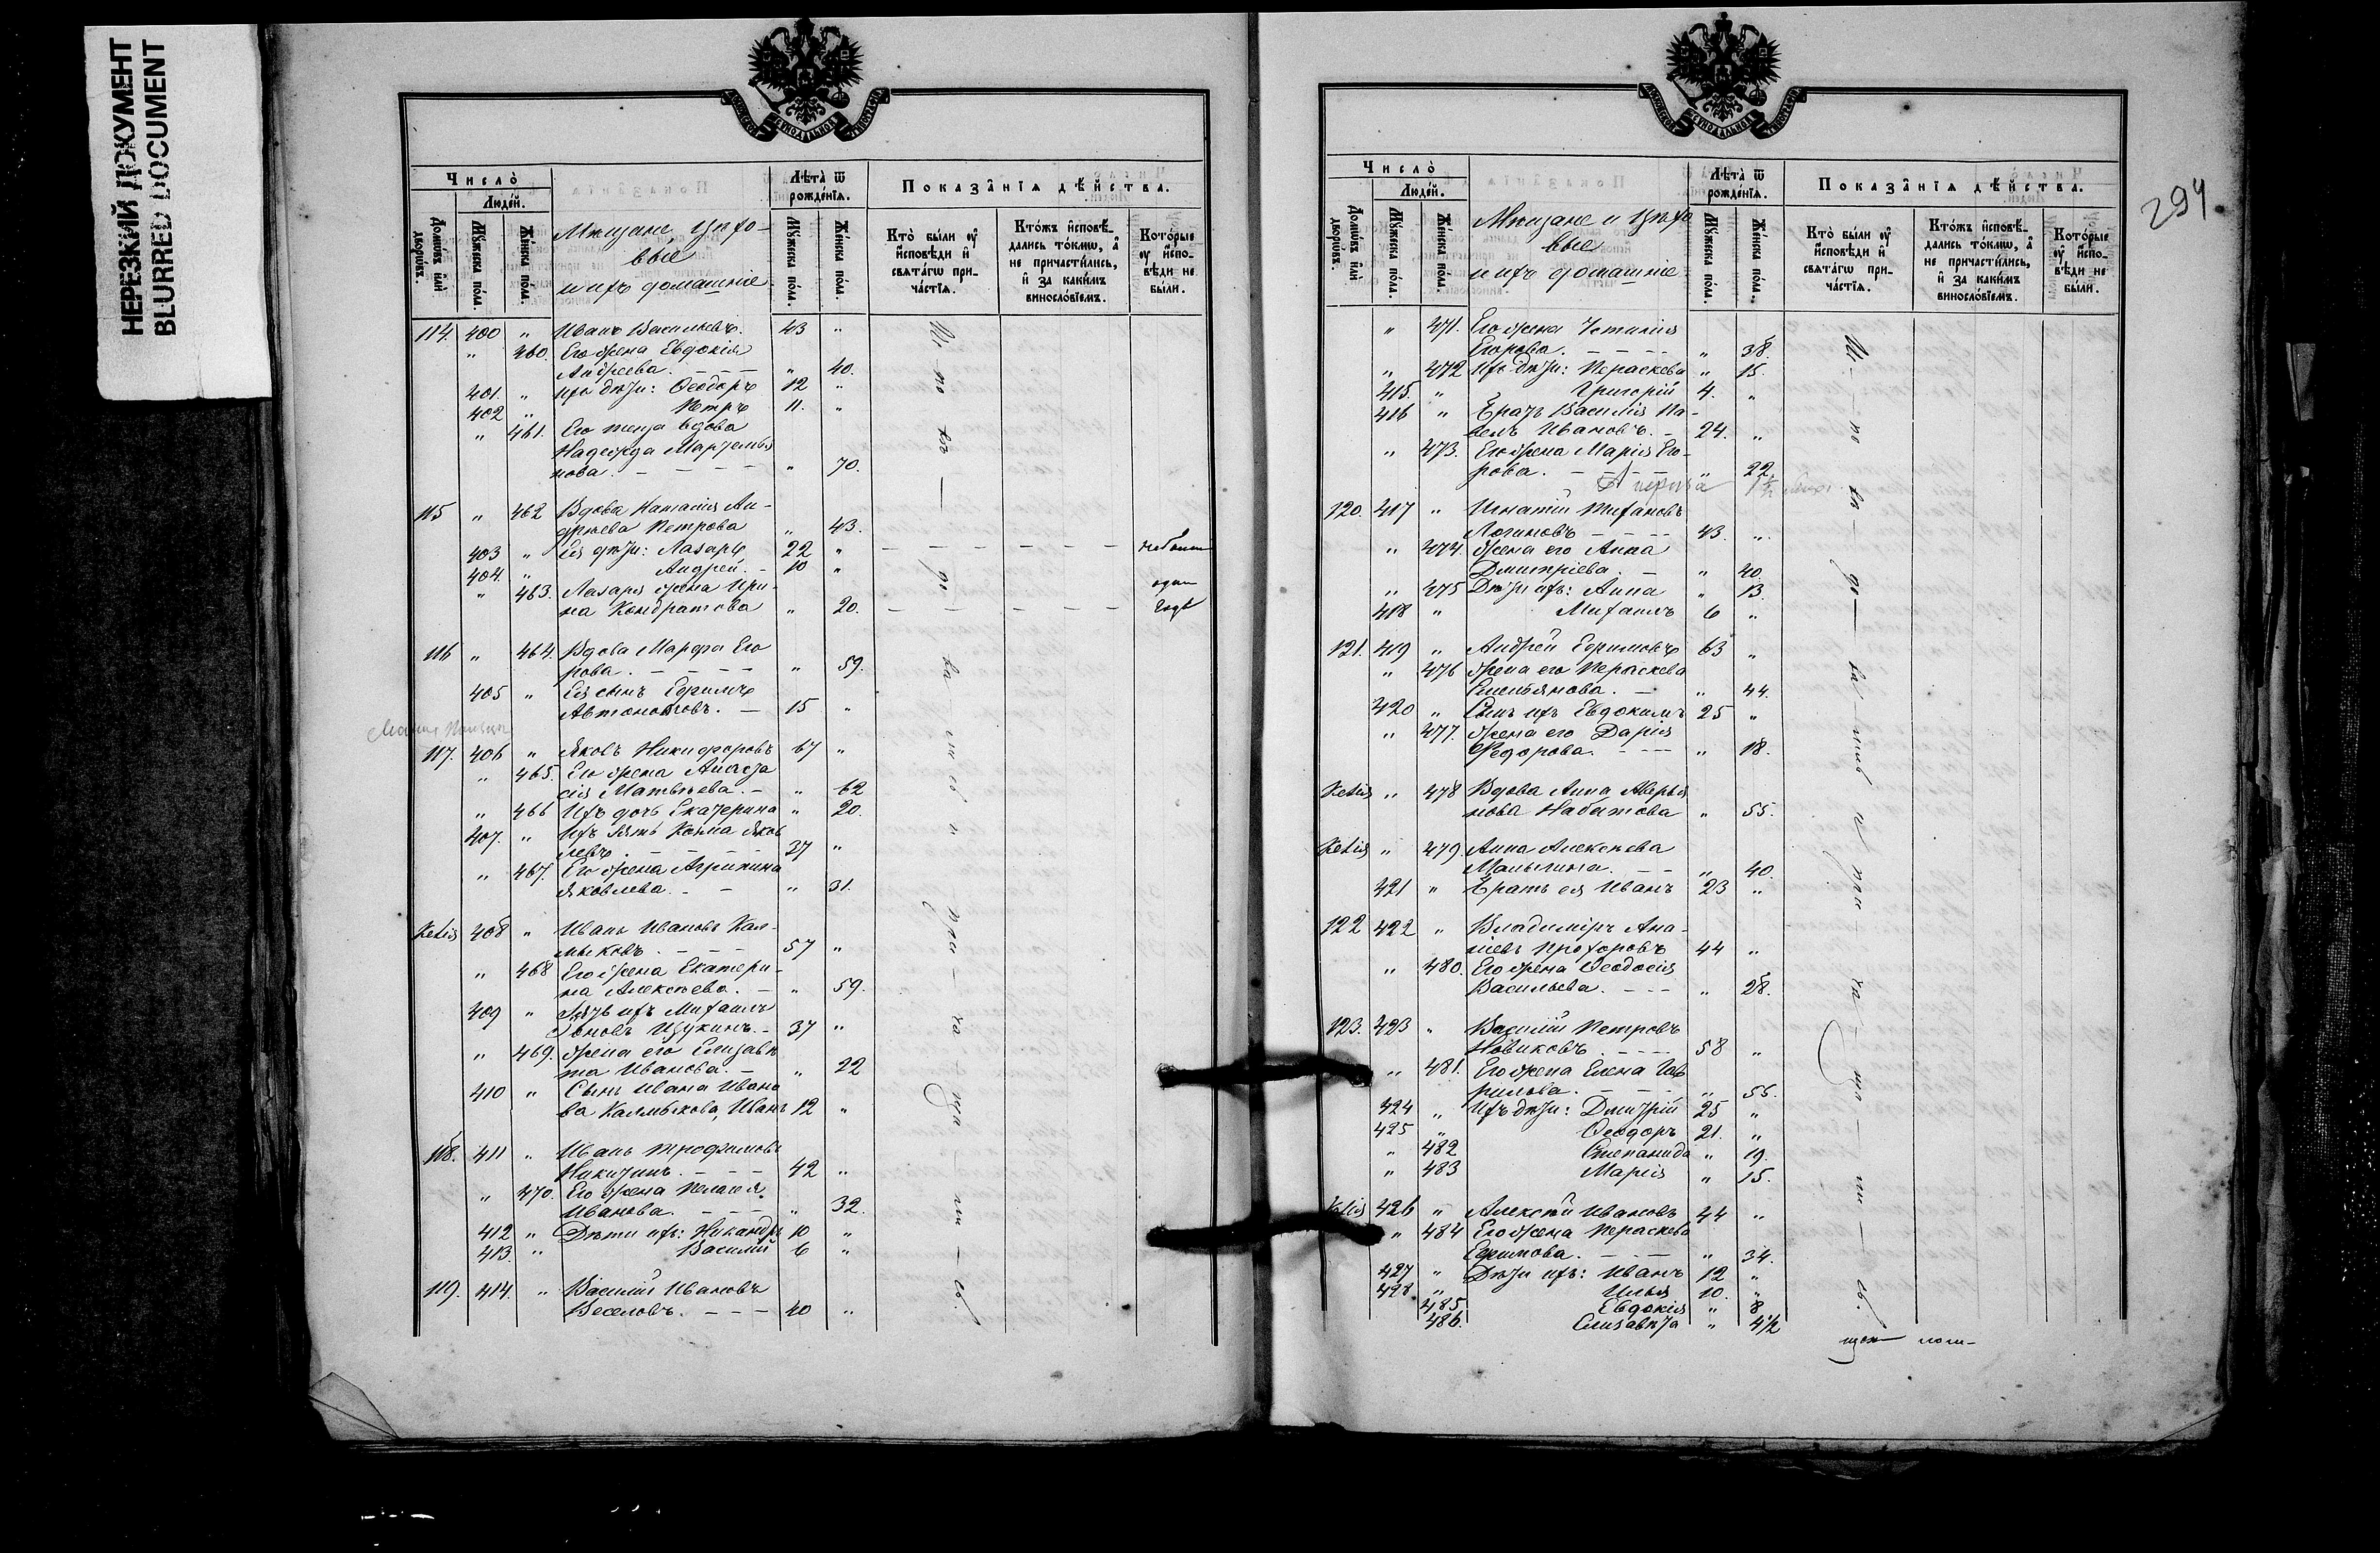 НЕРЕЗКИЙ ДОКУМЕНТ
BLURRED DOCUMENT
МОСКОВСКОЙ СѴНОДАЛЬНОЙ ТИПОГРАФІИ
Число̀
Людей.
Домѡвъ или дворѡвъ.
Мꙋжеска пола.
Женска пола.
Мѣщане, цехо-
вые
и ихъ домашніе
Лѣта̀ ѿ рожденїѧ.
Мꙋжеска пола.
Женска пола.
Показанїѧ дѣйства.
Кто̀ были оу исповѣди и свѧтагѡ причастїѧ.
Ктожъ исповѣдались токмѡ, а не причастились, и за какимъ винословїемъ.
Которые оу исповѣди не были.
114. 400 " Иванъ Васильевъ. 43 "
" 460. Его жена Евдокія
Андреева. - - - " 40.
401. " Ихъ дѣти: Ѳеодоръ 12 "
402 " Петръ 11. "
" 461. Его теща вдова
Надежда Мартемья
нова. - - - - " 70.
115 " 462 Вдова Наталія Ан-
дреева Петрова " 43.
403 " Ея дѣти: Лазарь 22 " - - - - - - не были
404. " Андрей. - 10 "
один
" 463. Лазаря жена Ири-
на Кондратова " 20. - - - - - - годъ
116 " 464. Вдова Марфа Его
рова. - - - - " 59.
405 " Ея сынъ Ефимъ
Автономовъ. - 15 "
117. 406 " Яковъ Никифоровъ 67 "
" 465. Его жена Анаста
сія Матвѣева. - " 62
" 466 Ихъ дочь Екатерина " 20.
407. " Ихъ зять Козма Яков
левъ. - - - - 37 "
" 467. Его жена Агрипина
Яковлева. - - " 31.
408 " Иванъ Ивановъ Кал-
мыковъ. - - - 57 "
" 468 Его жена Екатери-
на Алексѣева. - " 59.
409 " Зять ихъ Михаилъ
Іоновъ Щукинъ. - 37 "
" 469. жена его Елизаве
та Иванова. - " 22
410 " Сынъ Ивана Ивано
ва Калмыкова, Иванъ 12 "
118. 411 " Иванъ Трофимовъ
Никитинъ. - - - 42 "
" 470. Его жена Пелагея
Иванова. - - - " 32.
412 " Дѣти ихъ: Никандръ 10 "
413. " Василій 6 "
119. 414. " Василій Ивановъ
Веселовъ. - - - 40 "
294
Число̀
Людей.
Домѡвъ или дворѡвъ.
Мꙋжеска пола.
Женска пола.
Мѣщане и цехо
вые
и ихъ домашніе
Лѣта̀ ѿ рожденїѧ.
Мꙋжеска пола.
Женска пола.
Показанїѧ дѣйства.
Кто̀ были оу исповѣди и свѧтагѡ причастїѧ.
Ктожъ исповѣдались токмѡ, а не причастились, и за какимъ винословїемъ.
Которые оу исповѣди не были.
" 471. Его жена Устинія
Егорова. - - - - " 38.
" 472 Ихъ дѣти: Параскева " 15.
415. " Григорій 4. "
416 " Братъ Василія Па-
велъ Ивановъ. - 24. "
" 473. Его жена Марія Его-
рова. - - - - " 22
120. 417 " Игнатій Тихановъ
Логиновъ - - - - 43. "
" 474. жена его Анна
Дмитріева. - " 40.
" 475 Дѣти ихъ: Анна " 13.
418 " Михаилъ 6 "
121. 419 " Андрей Ефимовъ 63 "
" 476 жена его Параскева
Емельянова. - " 44.
420 " Сынъ ихъ Евдокимъ 25 "
" 477. жена его Дарія
Ѳедорова. - - - " 18.
" 478 Вдова Анна Аверья
нова Набатова " 55.
" 479. Анна Алексѣева
Малыгина. - - " 40.
421 " Братъ ея Иванъ 23 "
122 422 " Владиміръ Ана-
ніевъ Прохоровъ 44 "
" 480. Его жена Ѳеодосія
Васильева. - - - " 28.
123. 423 " Василій Петровъ
Новиковъ. - - - - 58 "
" 481. Его жена Елена Гав
рилова. - - - - " 55.
424 " Ихъ дѣти: Дмитрій 25 "
425 " Ѳеодоръ 21. "
" 482 Степанида " 19.
" 483 Марія " 15.
426 " Алексѣй Ивановъ 44 "
" 484 Его жена Параскева
Ефимова. - - - " 34.
427 " Дѣти ихъ: Иванъ 12 "
428 " Илья 10. "
485. Евдокія " 8
486. Елизавета " 4½